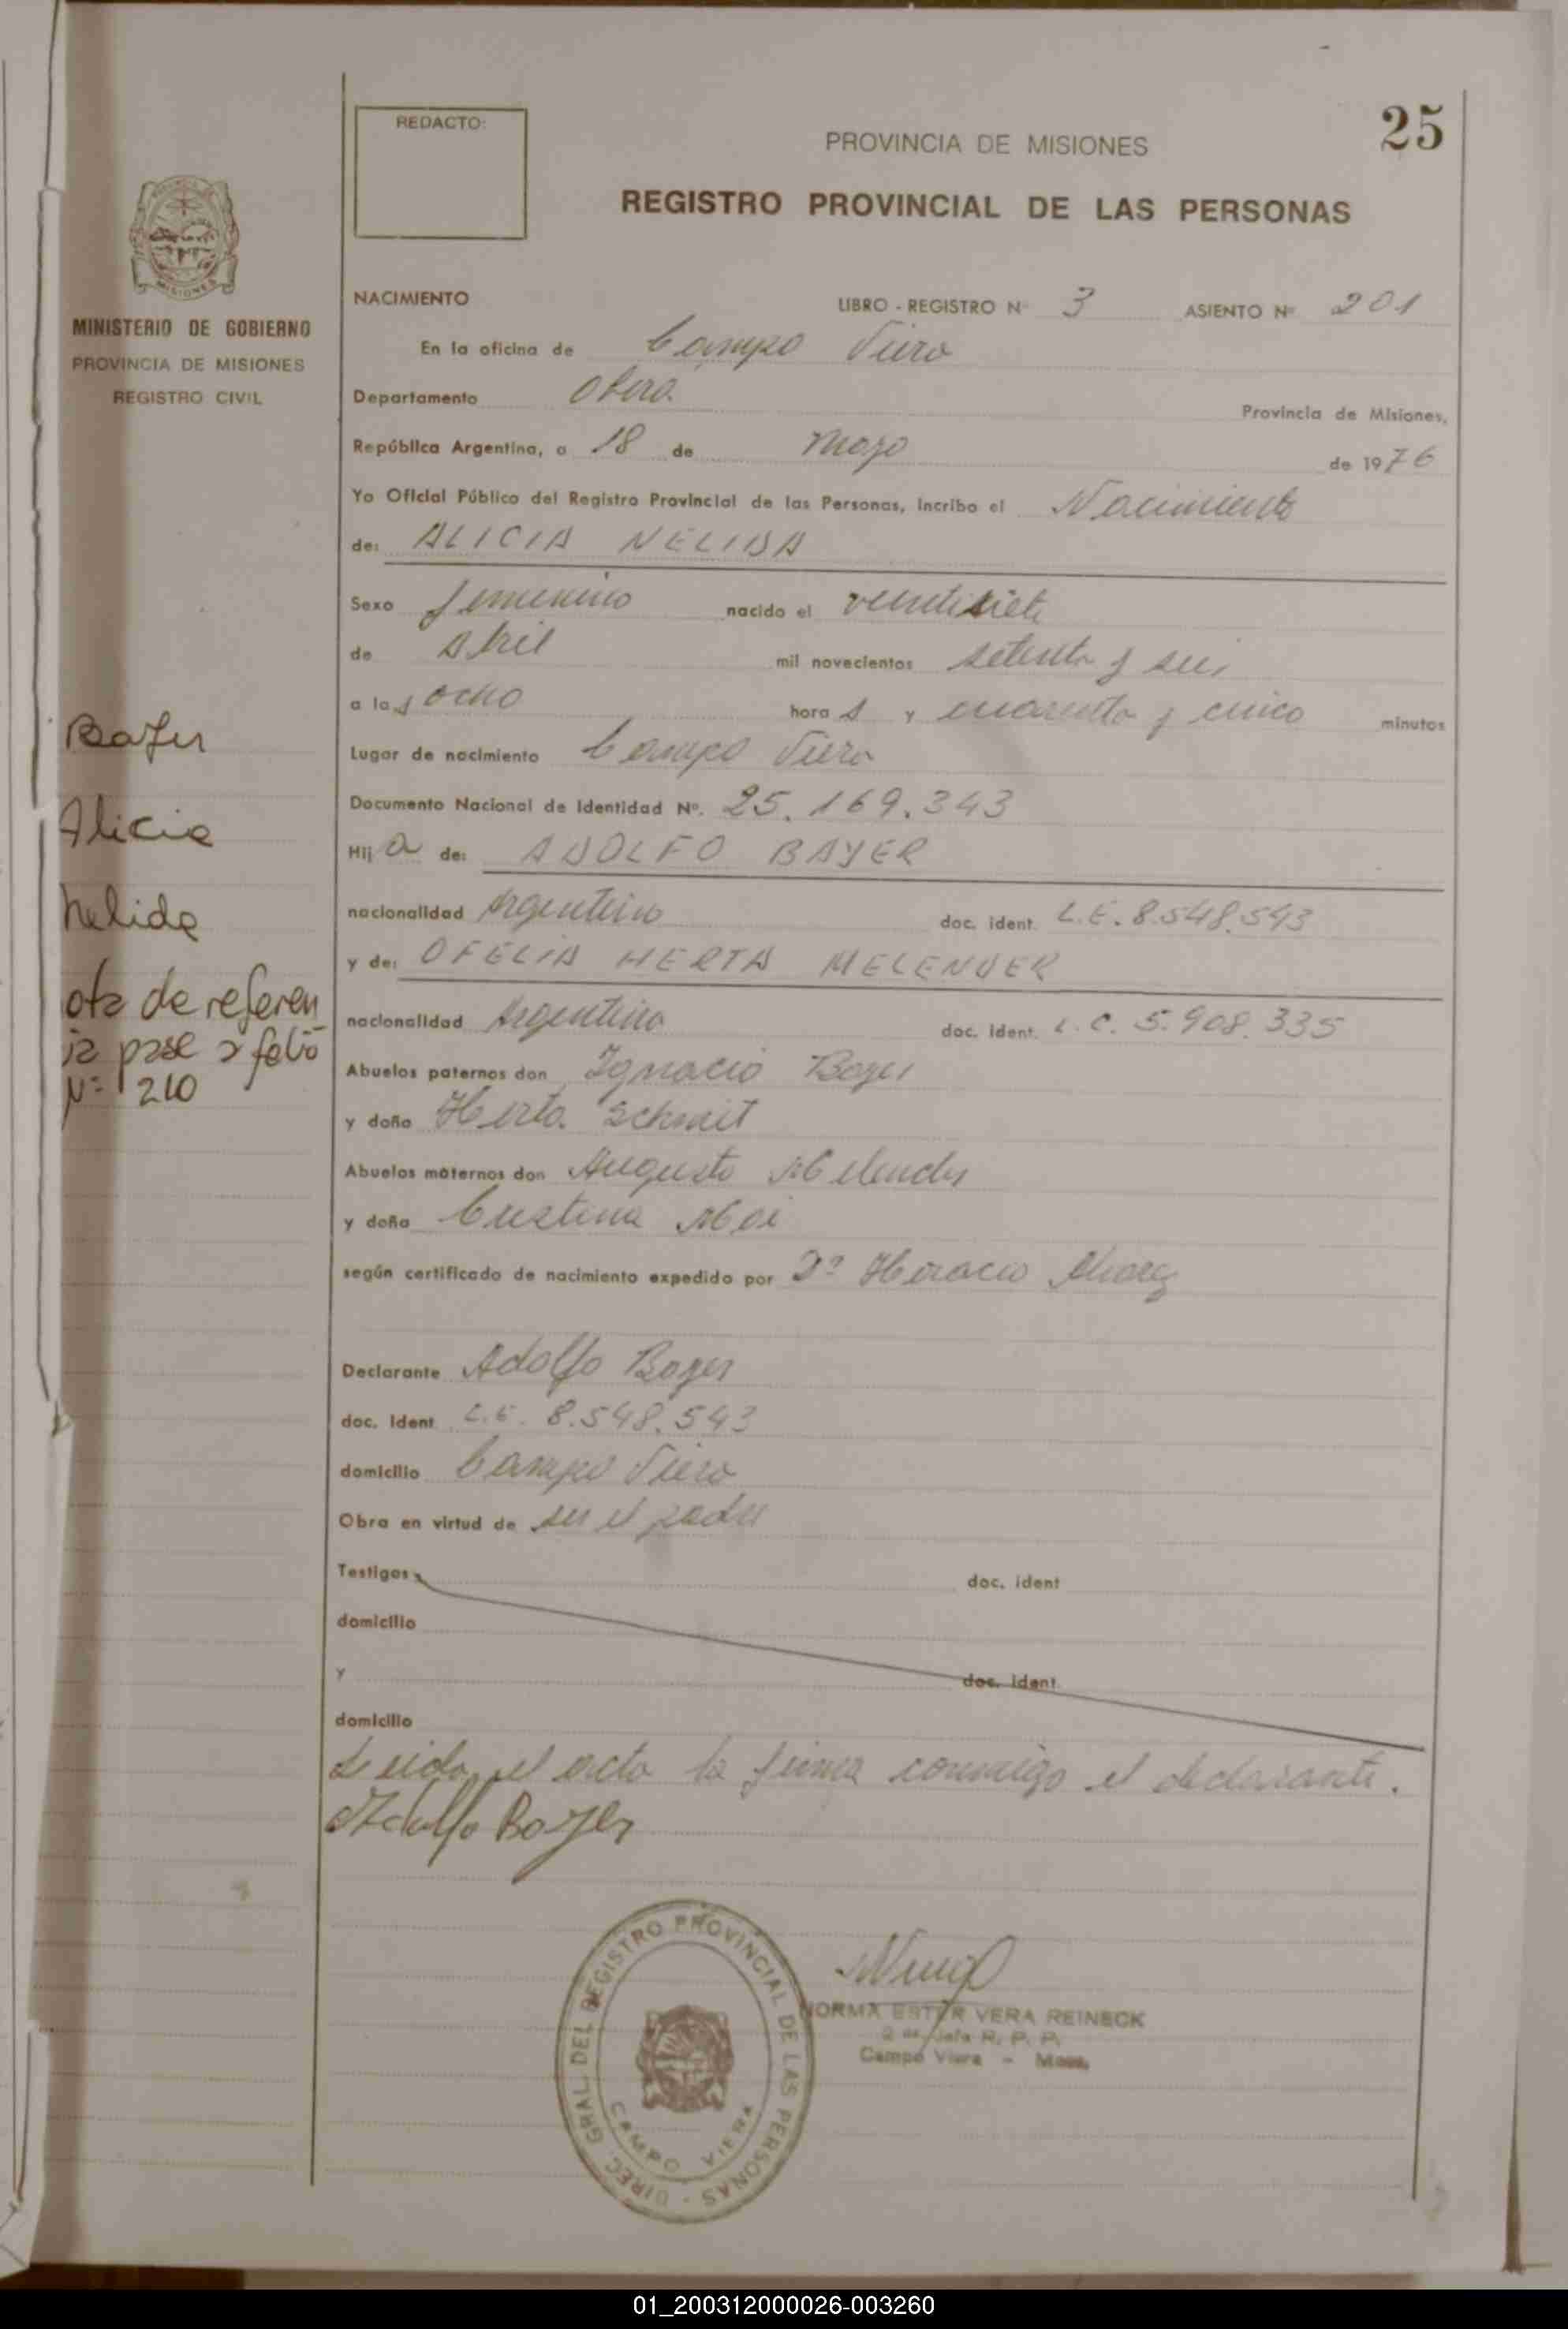 25
REDACTO:
PROVINCIA DE MISIONES
REGISTRO PROVINCIAL DE LAS PERSONAS
MISIONES
MINISTERIO DE GOBIERNO
PROVINCIA DE MISIONES
REGISTRO CIVIL
NACIMIENTO
LIBRO - REGISTRO Nº 3 ASIENTO Nº 201
En la oficina de Campo Viera
Departamento Oberá.
Provincia de Misiones,
República Argentina, a 18 de Mayo de 1976
Yo Oficial Público del Registro Provincial de las Personas, incribo el Nacimiento
de: ALICIA NELIDA
Sexo femenino nacido el veintisiete
de Abril mil novecientos setenta y seis
a las ocho horas y cuarenta y cinco minutos
Lugar de nacimiento Campo Viera
Documento Nacional de Identidad Nº. 25.169.343
Hija de: ADOLFO BAYER
nacionalidad Argentino doc. ident. L.E. 8.548.543
y de: OFELIA HERTA MELENDER
nacionalidad Argentina doc. ident. L.C. 5.908.335
Abuelos paternos don Ignacio Bayer
y doña Herta Schmit
Abuelos maternos don Augusto Melender
y doña Cristina
según certificado de nacimiento expedido por Dº Horacio Alvarez
Declarante Adolfo Bayer
doc. ident L.E. 8.548.543
domicilio Campo Viera
Obra en virtud de ser el padre
Testigos doc. ident
domicilio
y doc. ident
domicilio
Leida el acta la firma conmigo el declarante.
Adolfo Bayer
Bayer
Alicia
Nelida
ota de referen
ia pase a folio
Nº 210
DIREC. GRAL. DEL REGISTRO PROVINCIAL DE LAS PERSONAS -
CAMPO VIERA
NORMA ESTER VERA REINECK
Jefa R. P. P.
Campo Viera - Mnes.
01_200312000026-003260